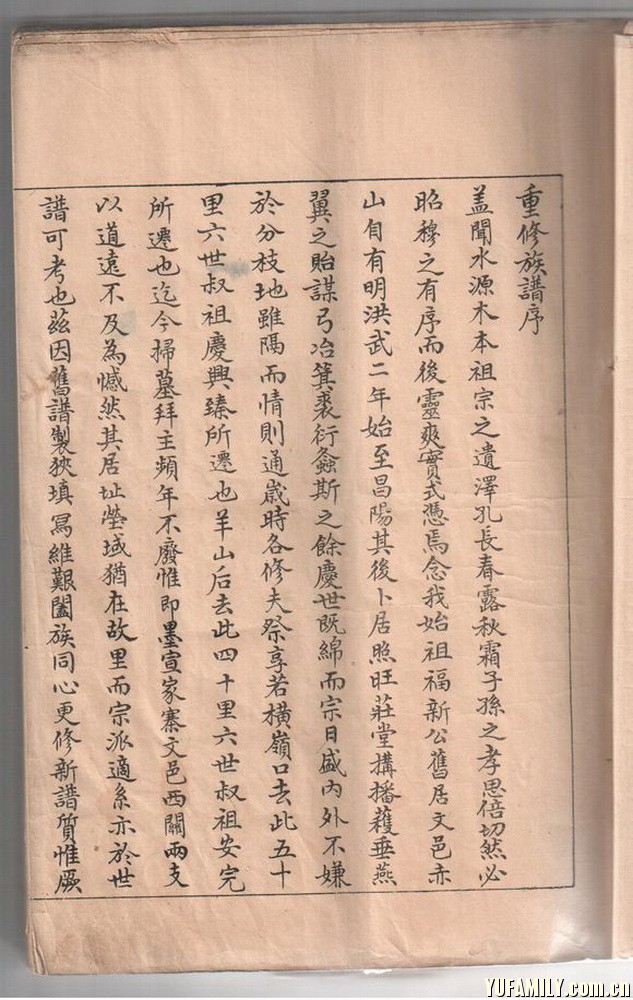 重修族譜序
盖聞水源木本祖宗之遺澤孔長春露秋霜子孫之孝思倍切然必
昭穆之有序而後靈爽實式憑焉念我始祖福新公舊居文邑赤
山自有明洪武二年始至昌陽其後卜居照旺莊堂搆播穫垂燕
翼之貽謀弓冶箕裘衍螽斯之餘慶世既綿而宗日盛內外不嫌
於分枝地雖隔而情則通歲時各修夫祭享若橫嶺口去此五十
里六世叔祖慶興臻所遷也羊山后去此四十里六世叔祖安完
所遷也迄今掃墓拜主頻年不廢惟即墨宣家寨文邑西關兩支
以道遠不及為憾然其居址塋域猶在故里而宗派適系亦於世
譜可考也茲因舊譜製狹填冩維艱闔族同心更修新譜質惟厥
YUFAMILY.com.cn